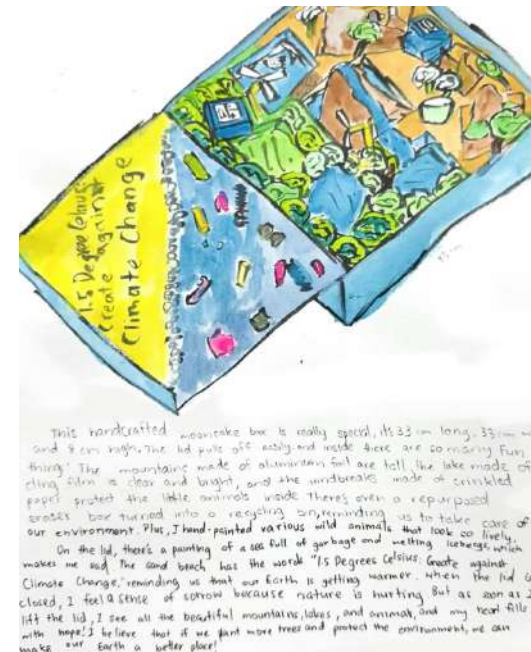 1.5 Degree Colours:
Create against
Climate Change
This handcrafted mooncake box is really special, its 33 cm long, 33 cm w
and 8 cm high. The lid pulls off easily and inside there are so many fun
thing! The mountains made of aluminium foil are tall, the lake made of
cling film is clear and bright, and the windbreaks made of crinkled
paper protect the little animals inside There's even a repurposed
box turned into a recycling bin, reminding us to take care of
our environment. Plus, I hand-painted various wild animals that look so lively.
On the lid, there's a painting of a sea full of garbage and melting icebergs, which
makes me sad. The sand beach has the words "1.5 Degrees Celsius: Create against
Climate Change," reminding us that our Earth is getting warmer. When the lid is
closed, I feel a sense of sorrow because nature is hurting But as soon as I
lift the lid, I see all the beautiful mountains, lakes, and animals, and my heart fills
with hope! I believe that if we plant more trees and protect the environment, we can
make our Earth a better place!